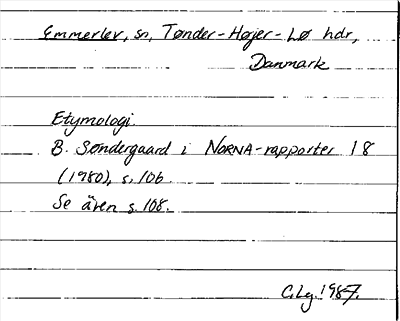 Emmerlev, sn, Tønder-Højer-Lø hdr,
Danmark
Etymologi.
B. Søndergaard i NORNA-rapporter 18
(1980), s. 106.
Se även s. 108.
C.Lg. 1987.